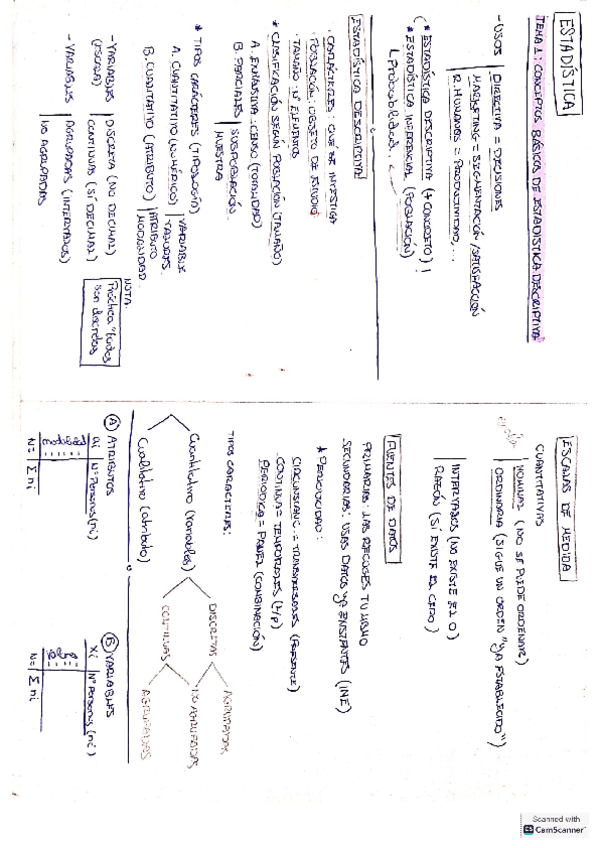 ESTADÍSTICA
TEMA 1: CONCEPTOS BÁSICOS DE ESTADÍSTICA DESCRIPTIVA
- USOS | DIRECTIVA = DECISIONES
MARKETING = SEGMENTACIÓN / SATISFACCIÓN
R. HUMANOS = PRODUCTIVIDAD, ...
* ESTADÍSTICA DESCRIPTIVA (+ CONCRETO)
* ESTADÍSTICA INFERENCIAL (POBLACIÓN)
Probabilidades.
ESTADÍSTICA DESCRIPTIVA
· CARÁCTERES: QUÉ SE INVESTIGA
· POBLACIÓN: OBJETO DE ESTUDIO
· TAMAÑO: Nº ELEMENTOS
* CLASIFICACIÓN SEGÚN POBLACIÓN (TAMAÑO)
A. EXHAUSTIVA: CENSO (TOTALIDAD)
B. PARCIALES | SUBPOBLACIÓN
MUESTRA
* TIPOS CARÁCTERES (TIPOLOGÍA)
A. CUANTITATIVO (NUMÉRICO) | VARIABLE
VALORES.
B. CUALITATIVO (ATRIBUTO) | ATRIBUTO
MODALIDAD.
- VARIABLES | DISCRETA (NO DECIMAL)
(ESCALA) CONTINUAS (SÍ DECIMAL)
- VARIABLES | AGRUPADAS (INTERVALOS)
NO AGRUPADAS
NOTA:
Práctica "todas
son discretas
ESCALAS DE MEDIDA
CUANTITATIVAS
NOMINAL (NO SE PUEDE ORDENAR)
ORDINARIA (SIGUE UN ORDEN "YA ESTABLECIDO")
INTERVALOS (NO EXISTE EL 0)
RAZÓN (SÍ EXISTE EL CERO)
FUENTES DE DATOS
PRIMARIAS: LAS RECOGES TU MISMO
SECUNDARIAS: USAS DATOS YA EXISTENTES (INE)
* PERIODICIDAD:
CIRCUNSTANC. = TRANSVERSALES (PRESENTE)
CONTINUA = TEMPORALES (L/P)
PERIÓDICA = PANEL (COMBINACIÓN)
TIPOS CARACTERES:
Cuantitativo (variables)
Cualitativo (atributo)
DISCRETAS
CONTINUAS
AGRUPADAS
NO AGRUPADAS
AGRUPADAS
A ATRIBUTOS
Nº Personas (ni)
N= Σni
B VARIABLES
Xi | Nº Personas (ni)
N= Σni
Scanned with
CamScanner